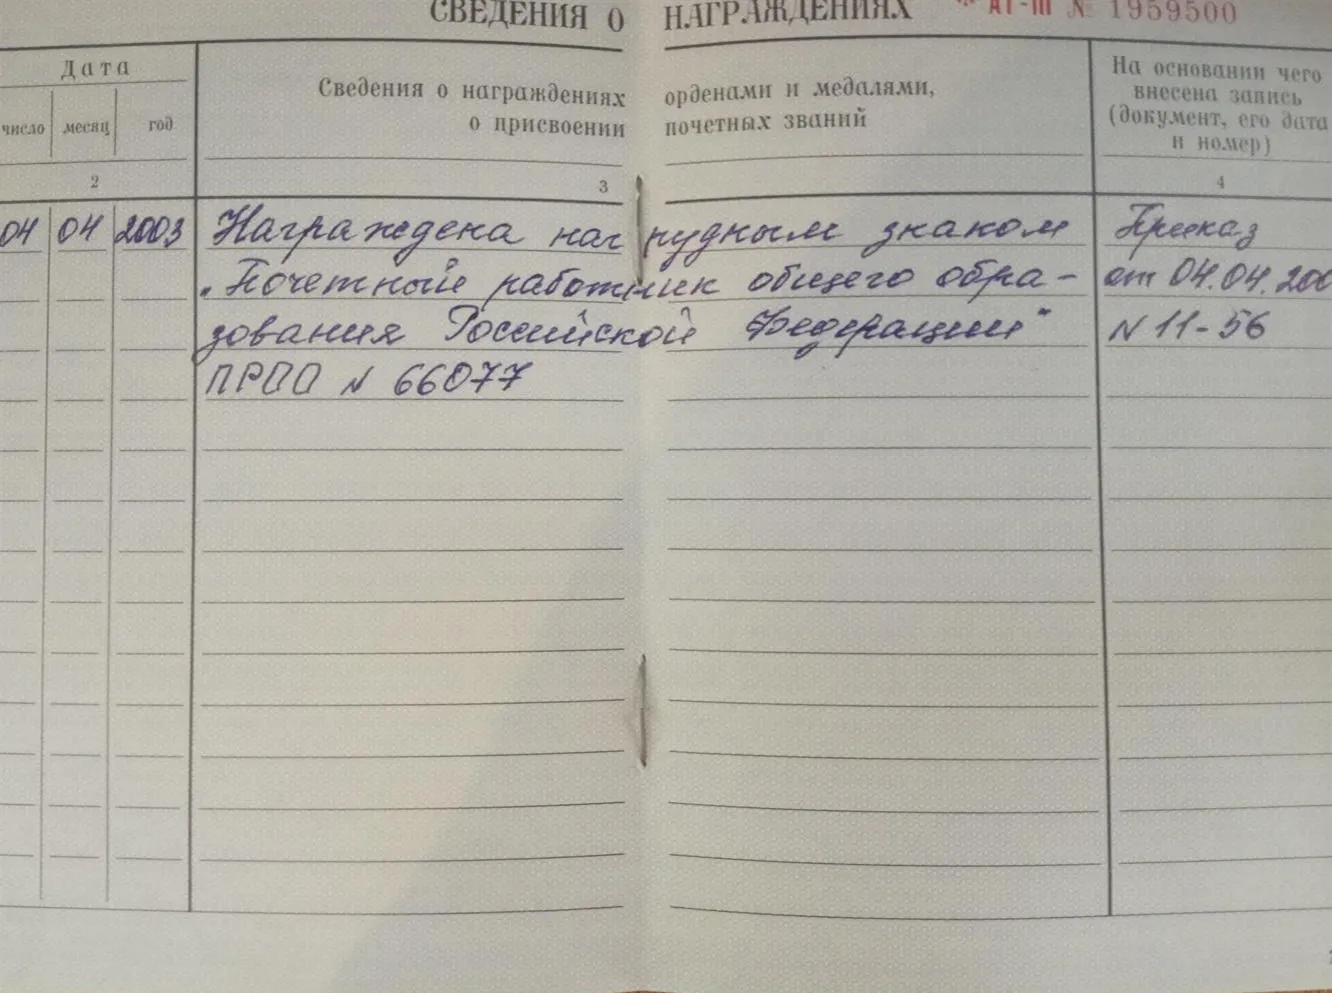 СВЕДЕНИЯ О НАГРАЖДЕНИЯХ АТ-III № 1959500
Дата
число месяц год
Сведения о награждениях орденами и медалями,
о присвоении почетных званий
На основании чего
внесена запись
(документ, его дата
и номер)
2 3 4
04 04 2003 Награждена нагрудным знаком Приказ
„Почетный работник общего обра- от 04.04.200
зования Российской Федерации" N 11-56
ПРПО N 66077